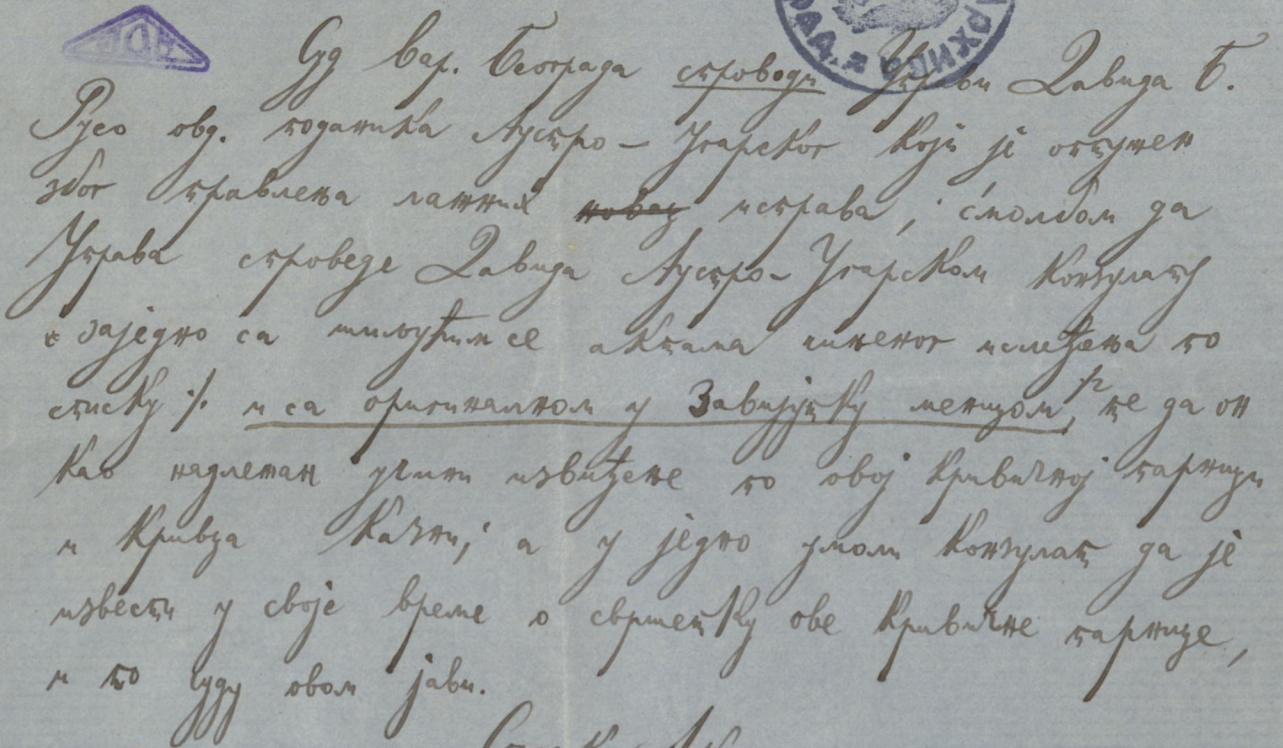 Суд Вар. Београда спроводи Управи Давида Б.
Русо овд. поданика Аустро-Угарског који је оптужен
због прављења лажних новац исправа, с' молбом да
Управа спроведе Давида Аустро-Угарском Конзулату
заједно са шиљућим се актама ислеђења по
списку ./. и са оригиналном у Завијутку меницом, ./2 те да он
као надлежан учини извиђење по овој кривичној парници
и кривца казни; а у једно умоли Конзулат да је
извести у своје време о свршетку ове кривичне парнице,
и то суду овом јави.